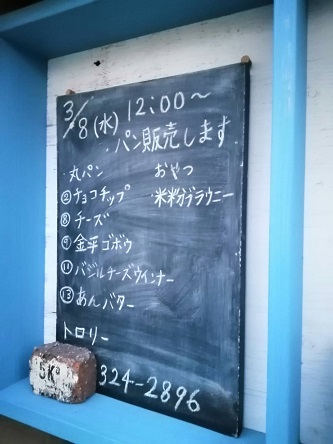 3/8(水) 12:00〜
・パン販売します
・丸パン
②チョコチップ
⑧チーズ
⑨金平ゴボウ
⑪バジルチーズウインナー
⑬あんバター
おやつ
・米粉ブラウニー
トロリー
324-2896
5K